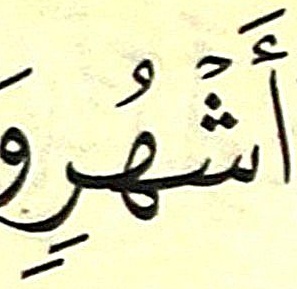 أَشْهُرٍ وَ